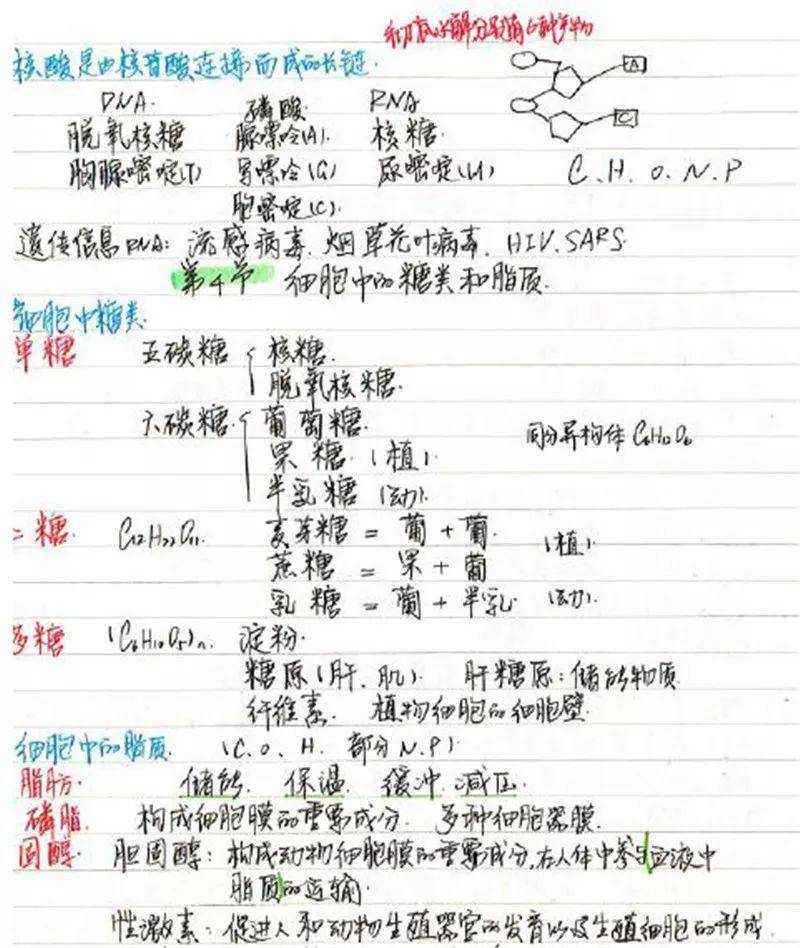 初底水解分别有6种产物
核酸是由核苷酸连接而成的长链.
A
DNA 磷酸 RNA
C
脱氧核糖 腺嘌呤(A). 核糖
胸腺嘧啶(T) 鸟嘌呤(G) 尿嘧啶(U) C.H.O.N.P
胞嘧啶(C).
遗传信息RNA: 流感病毒. 烟草花叶病毒. HIV.SARS.
第4节 细胞中的糖类和脂质.
细胞中糖类.
单糖 五碳糖 { 核糖.
脱氧核糖.
六碳糖. { 葡萄糖. 同分异构体 C6H12O6
果糖. (植).
半乳糖 (动).
二糖. C12H22O11. 麦芽糖 = 葡 + 葡. (植).
蔗糖 = 果 + 葡
乳糖 = 葡 + 半乳. (动).
多糖 (C6H10O5)n. 淀粉.
糖原(肝、肌). 肝糖原:储能物质.
纤维素. 植物细胞的细胞壁.
细胞中的脂质. (C.O.H. 部分N.P).
脂肪. 储能. 保温. 缓冲. 减压.
磷脂. 构成细胞膜的重要成分. 多种细胞器膜.
固醇 胆固醇: 构成动物细胞膜的重要成分,在人体中参与血液中
脂质的运输.
性激素: 促进人和动物生殖器官的发育以及生殖细胞的形成.